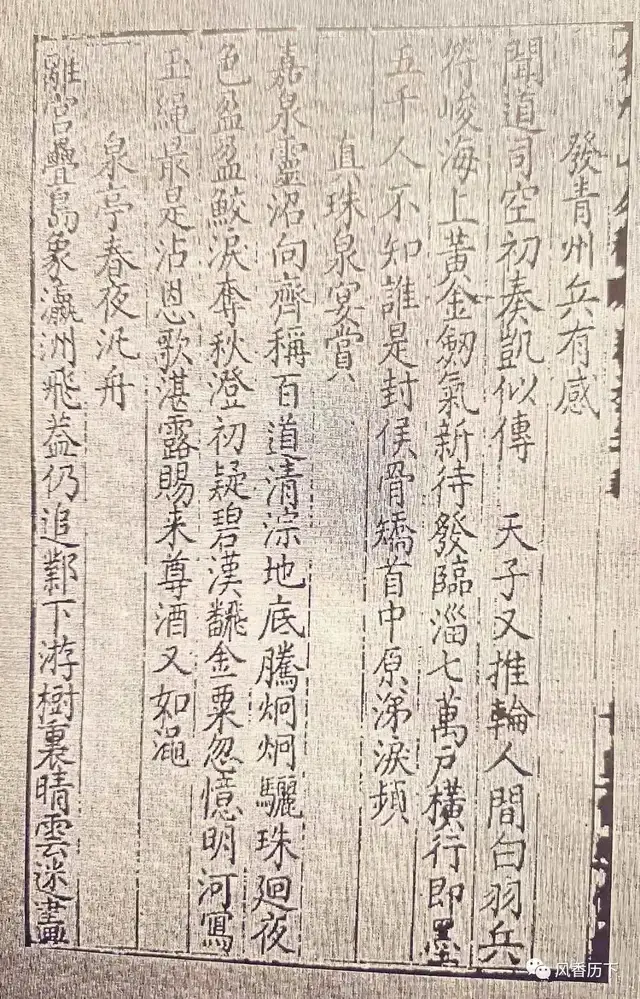 發青州兵有感
聞道司空初奏凱似傳 天子又推輪人間白羽兵
符峻海上黃金劒氣新待發臨淄七萬戶橫行即墨
五千人不知誰是封侯骨矯首中原涕淚頻
真珠泉宴賞
嘉泉靈沼向齊稱百道清淙地底騰炯炯驪珠廻夜
色盈盈鮫淚奪秋澄初疑碧漢飜金粟忽憶明河寫
玉繩最是沾恩歌湛露賜来尊酒又如澠
泉亭春夜汎舟
離宮疊島象瀛洲飛蓋仍追鄴下游樹裏晴雲迷畫
风香历下